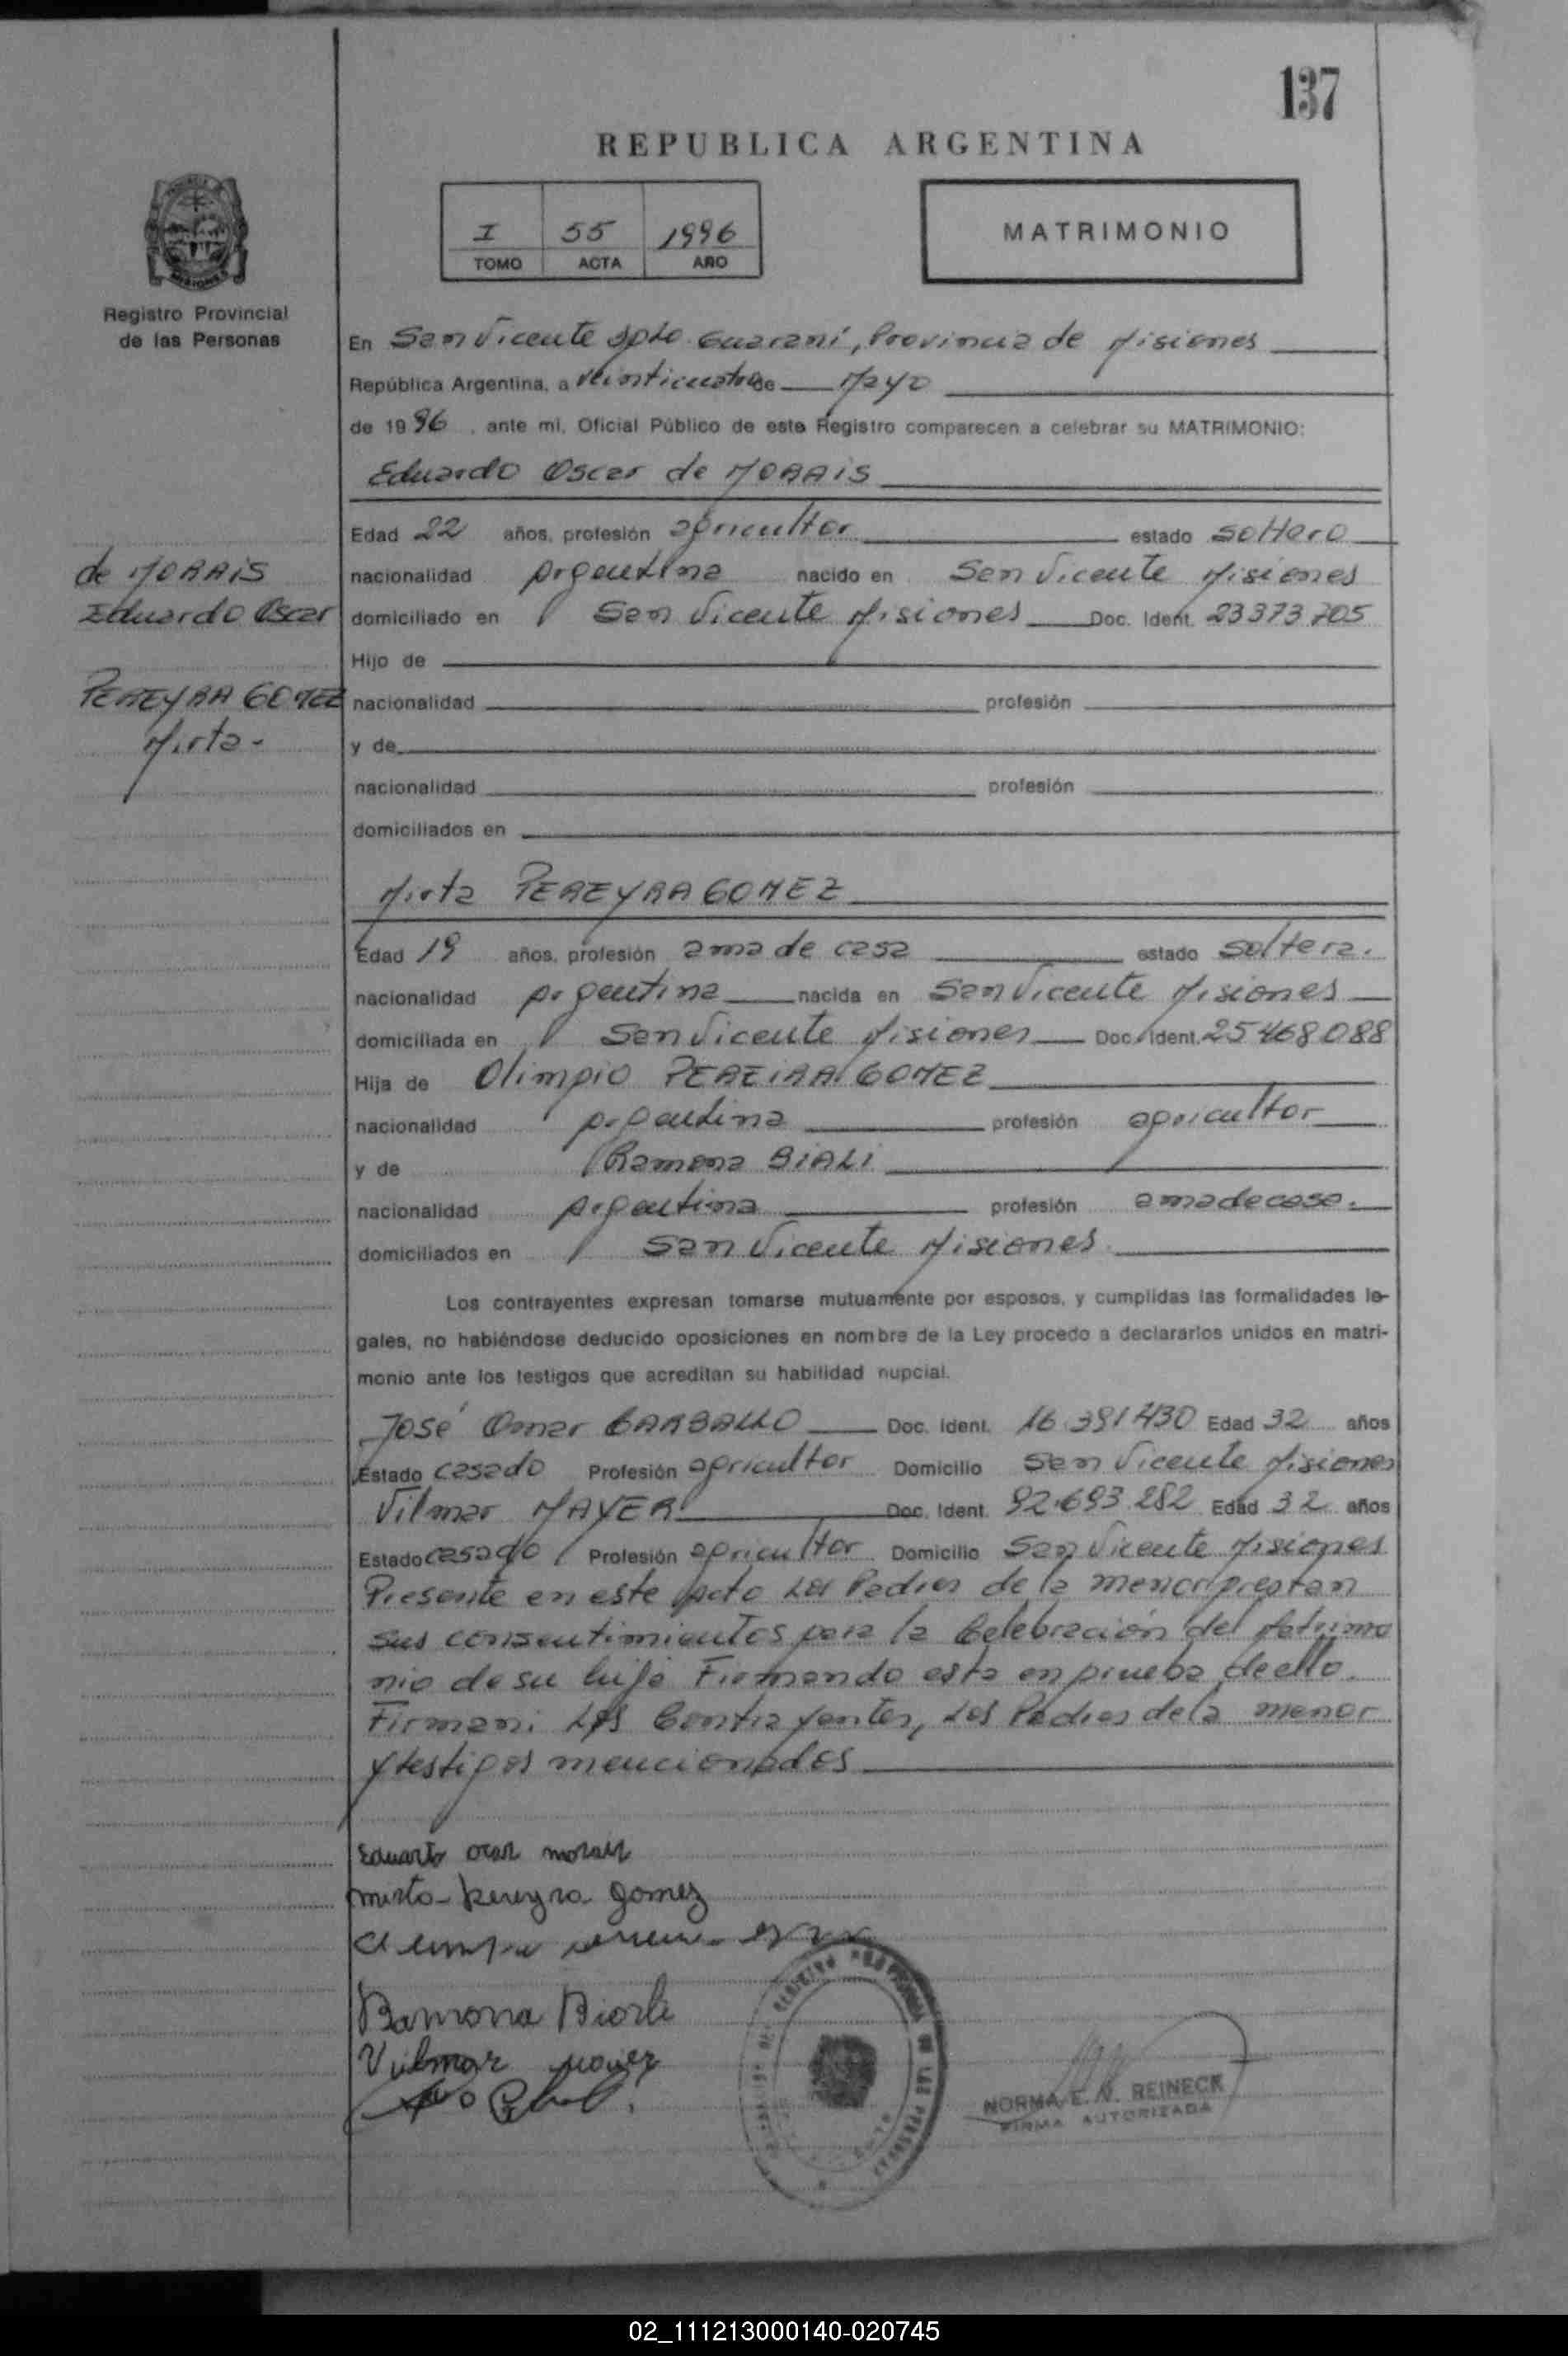 137
REPUBLICA ARGENTINA
I 55 1996
TOMO ACTA AÑO
MATRIMONIO
Registro Provincial
de las Personas
En San Vicente Dpto. Guaraní, Provincia de Misiones
República Argentina, a veinticuatro de Mayo
de 1996, ante mí, Oficial Público de este Registro comparecen a celebrar su MATRIMONIO:
Eduardo Oscar de MORAIS
Edad 22 años, profesión agricultor estado soltero
de MORAIS
nacionalidad Argentina nacido en San Vicente Misiones
Eduardo Oscar
domiciliado en San Vicente Misiones Doc. Ident. 23373705
Hijo de
PEREYRA GOMEZ
nacionalidad profesión
Mirta-
y de
nacionalidad profesión
domiciliados en
Mirta PEREYRA GOMEZ
Edad 19 años, profesión ama de casa estado soltera.
nacionalidad Argentina nacida en San Vicente Misiones
domiciliada en San Vicente Misiones Doc. Ident. 25468088
Hija de Olimpio PEREIRA GOMEZ
nacionalidad Argentina profesión agricultor
y de Ramona BIALI
nacionalidad Argentina profesión ama de casa.
domiciliados en San Vicente Misiones
Los contrayentes expresan tomarse mutuamente por esposos, y cumplidas las formalidades le-
gales, no habiéndose deducido oposiciones en nombre de la Ley procedo a declararlos unidos en matri-
monio ante los testigos que acreditan su habilidad nupcial.
José Omar CARBALLO Doc. Ident. 16.391430 Edad 32 años
Estado casado Profesión agricultor Domicilio San Vicente Misiones
Vilmar MAYER Doc. Ident. 92.693.282 Edad 32 años
Estado casado Profesión agricultor Domicilio San Vicente Misiones
Presente en este Acto Los Padres de la menor prestan
sus consentimientos para la Celebración del Matrimo
nio de su hija Firmando esta en prueba de ello.
Firman: Los Contrayentes, Los Padres de la menor
y testigos mencionados
Eduarto ocar morais
mirta-pereyra gomez
Ramona Biorli
Vilmar
NORMA E. N. REINECK
FIRMA AUTORIZADA
02_111213000140-020745